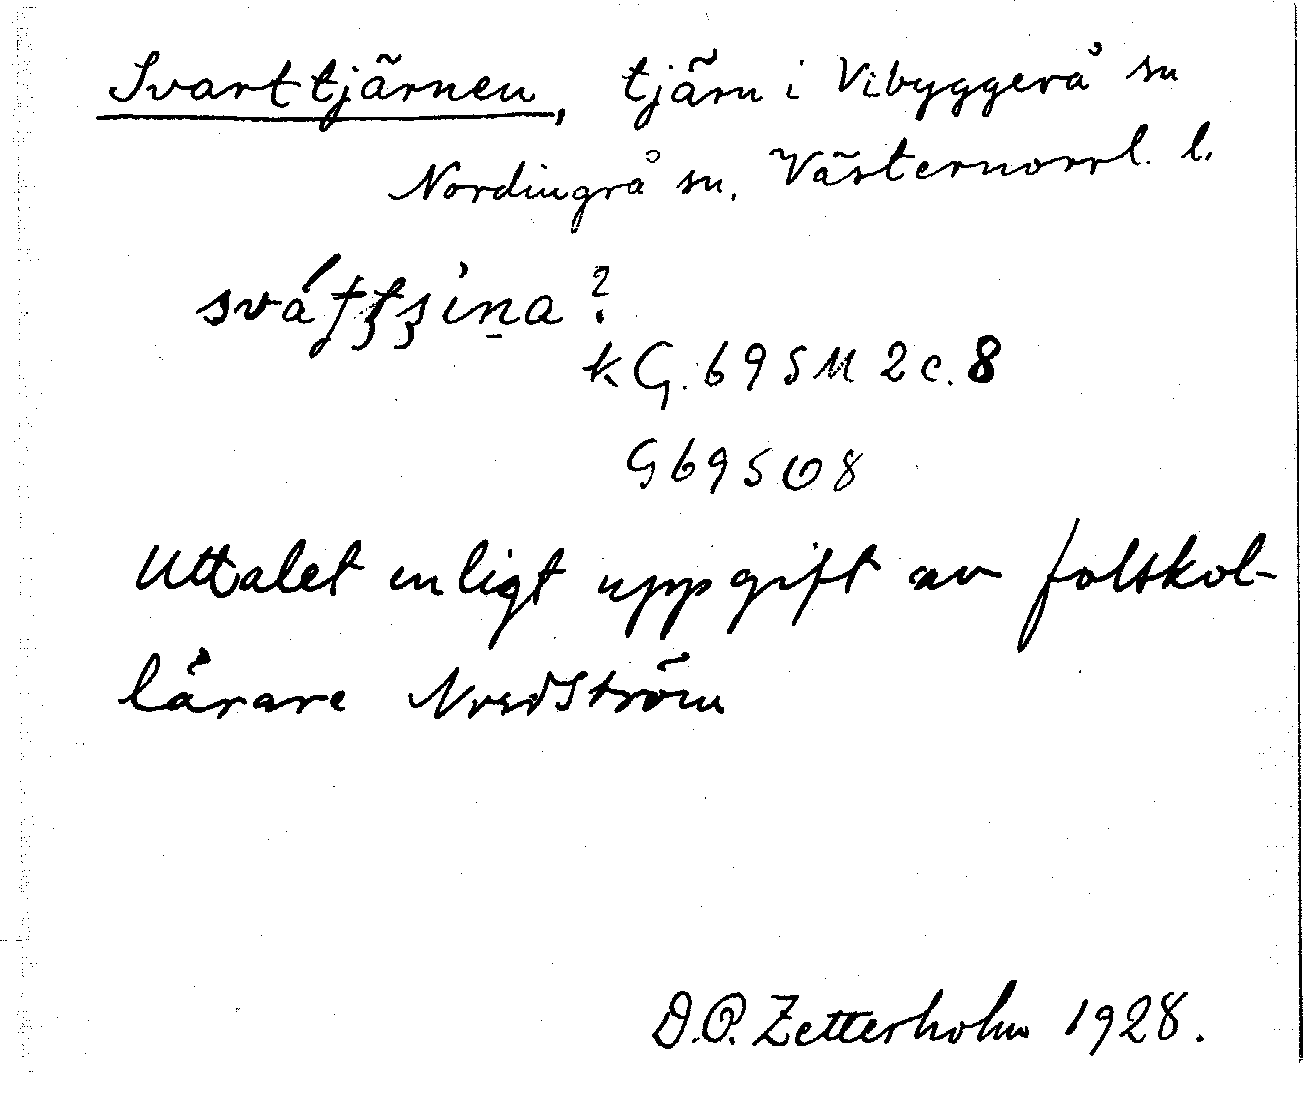 Svarttjärnen, tjärn i Vibyggerå sn
Nordingrå sn. Västernorrl. l.
?
kG. 69 SM 2 c. 8
G 69 S O 8
Uttalet enligt uppgift av folkskol-
lärare Nordström
D.O. Zetterholm 1928.